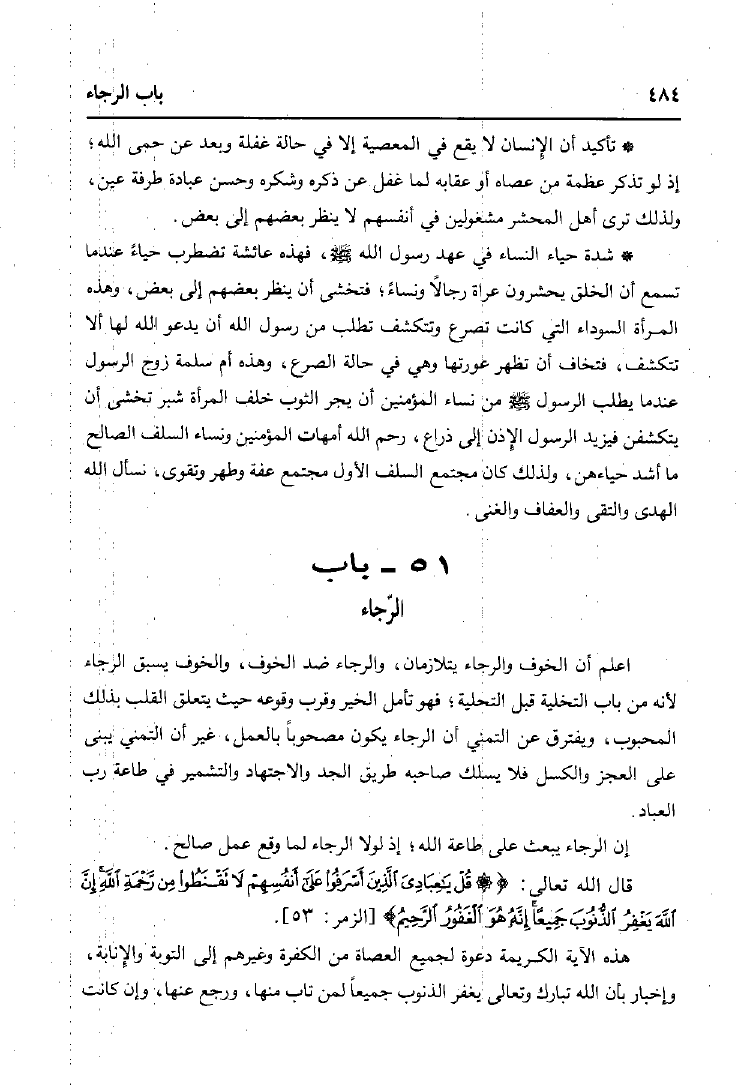 ٤٨٤ باب الرجاء
* تأكيد أن الإنسان لا يقع في المعصية إلا في حالة غفلة وبعد عن حمى الله؛
إذ لو تذكر عظمة من عصاه أو عقابه لما غفل عن ذكره وشكره وحسن عبادة طرفة عين،
ولذلك ترى أهل المحشر مشغولين في أنفسهم لا ينظر بعضهم إلى بعض.
* شدة حياء النساء في عهد رسول الله ﷺ، فهذه عائشة تضطرب حياءً عندما
تسمع أن الخلق يحشرون عراة رجالًا ونساءً؛ فتخشى أن ينظر بعضهم إلى بعض، وهذه
المرأة السوداء التي كانت تصرع وتتكشف تطلب من رسول الله أن يدعو الله لها ألا
تتكشف، فتخاف أن تظهر عورتها وهي في حالة الصرع، وهذه أم سلمة زوج الرسول
عندما يطلب الرسول ﷺ من نساء المؤمنين أن يجر الثوب خلف المرأة شبر تخشى أن
يتكشفن فيزيد الرسول الإذن إلى ذراع، رحم الله أمهات المؤمنين ونساء السلف الصالح
ما أشد حياءهن، ولذلك كان مجتمع السلف الأول مجتمع عفة وطهر وتقوى، نسأل الله
الهدى والتقى والعفاف والغنى.
٥١ - باب
الرّجاء
اعلم أن الخوف والرجاء يتلازمان، والرجاء ضد الخوف، والخوف يسبق الرجاء
لأنه من باب التخلية قبل التحلية؛ فهو تأمل الخير وقرب وقوعه حيث يتعلق القلب بذلك
المحبوب، ويفترق عن التمني أن الرجاء يكون مصحوباً بالعمل، غير أن التمني يبنى
على العجز والكسل فلا يسلك صاحبه طريق الجد والاجتهاد والتشمير في طاعة رب
العباد.
إن الرجاء يبعث على طاعة الله؛ إذ لولا الرجاء لما وقع عمل صالح.
قال الله تعالى: ﴿۞ قُلْ يَٰعِبَادِىَ ٱلَّذِينَ أَسْرَفُوا۟ عَلَىٰٓ أَنفُسِهِمْ لَا تَقْنَطُوا۟ مِن رَّحْمَةِ ٱللَّهِ ۚ إِنَّ
ٱللَّهَ يَغْفِرُ ٱلذُّنُوبَ جَمِيعًا ۚ إِنَّهُۥ هُوَ ٱلْغَفُورُ ٱلرَّحِيمُ﴾ [الزمر: ٥٣].
هذه الآية الكريمة دعوة لجميع العصاة من الكفرة وغيرهم إلى التوبة والإنابة،
وإخبار بأن الله تبارك وتعالى يغفر الذنوب جميعاً لمن تاب منها، ورجع عنها، وإن كانت